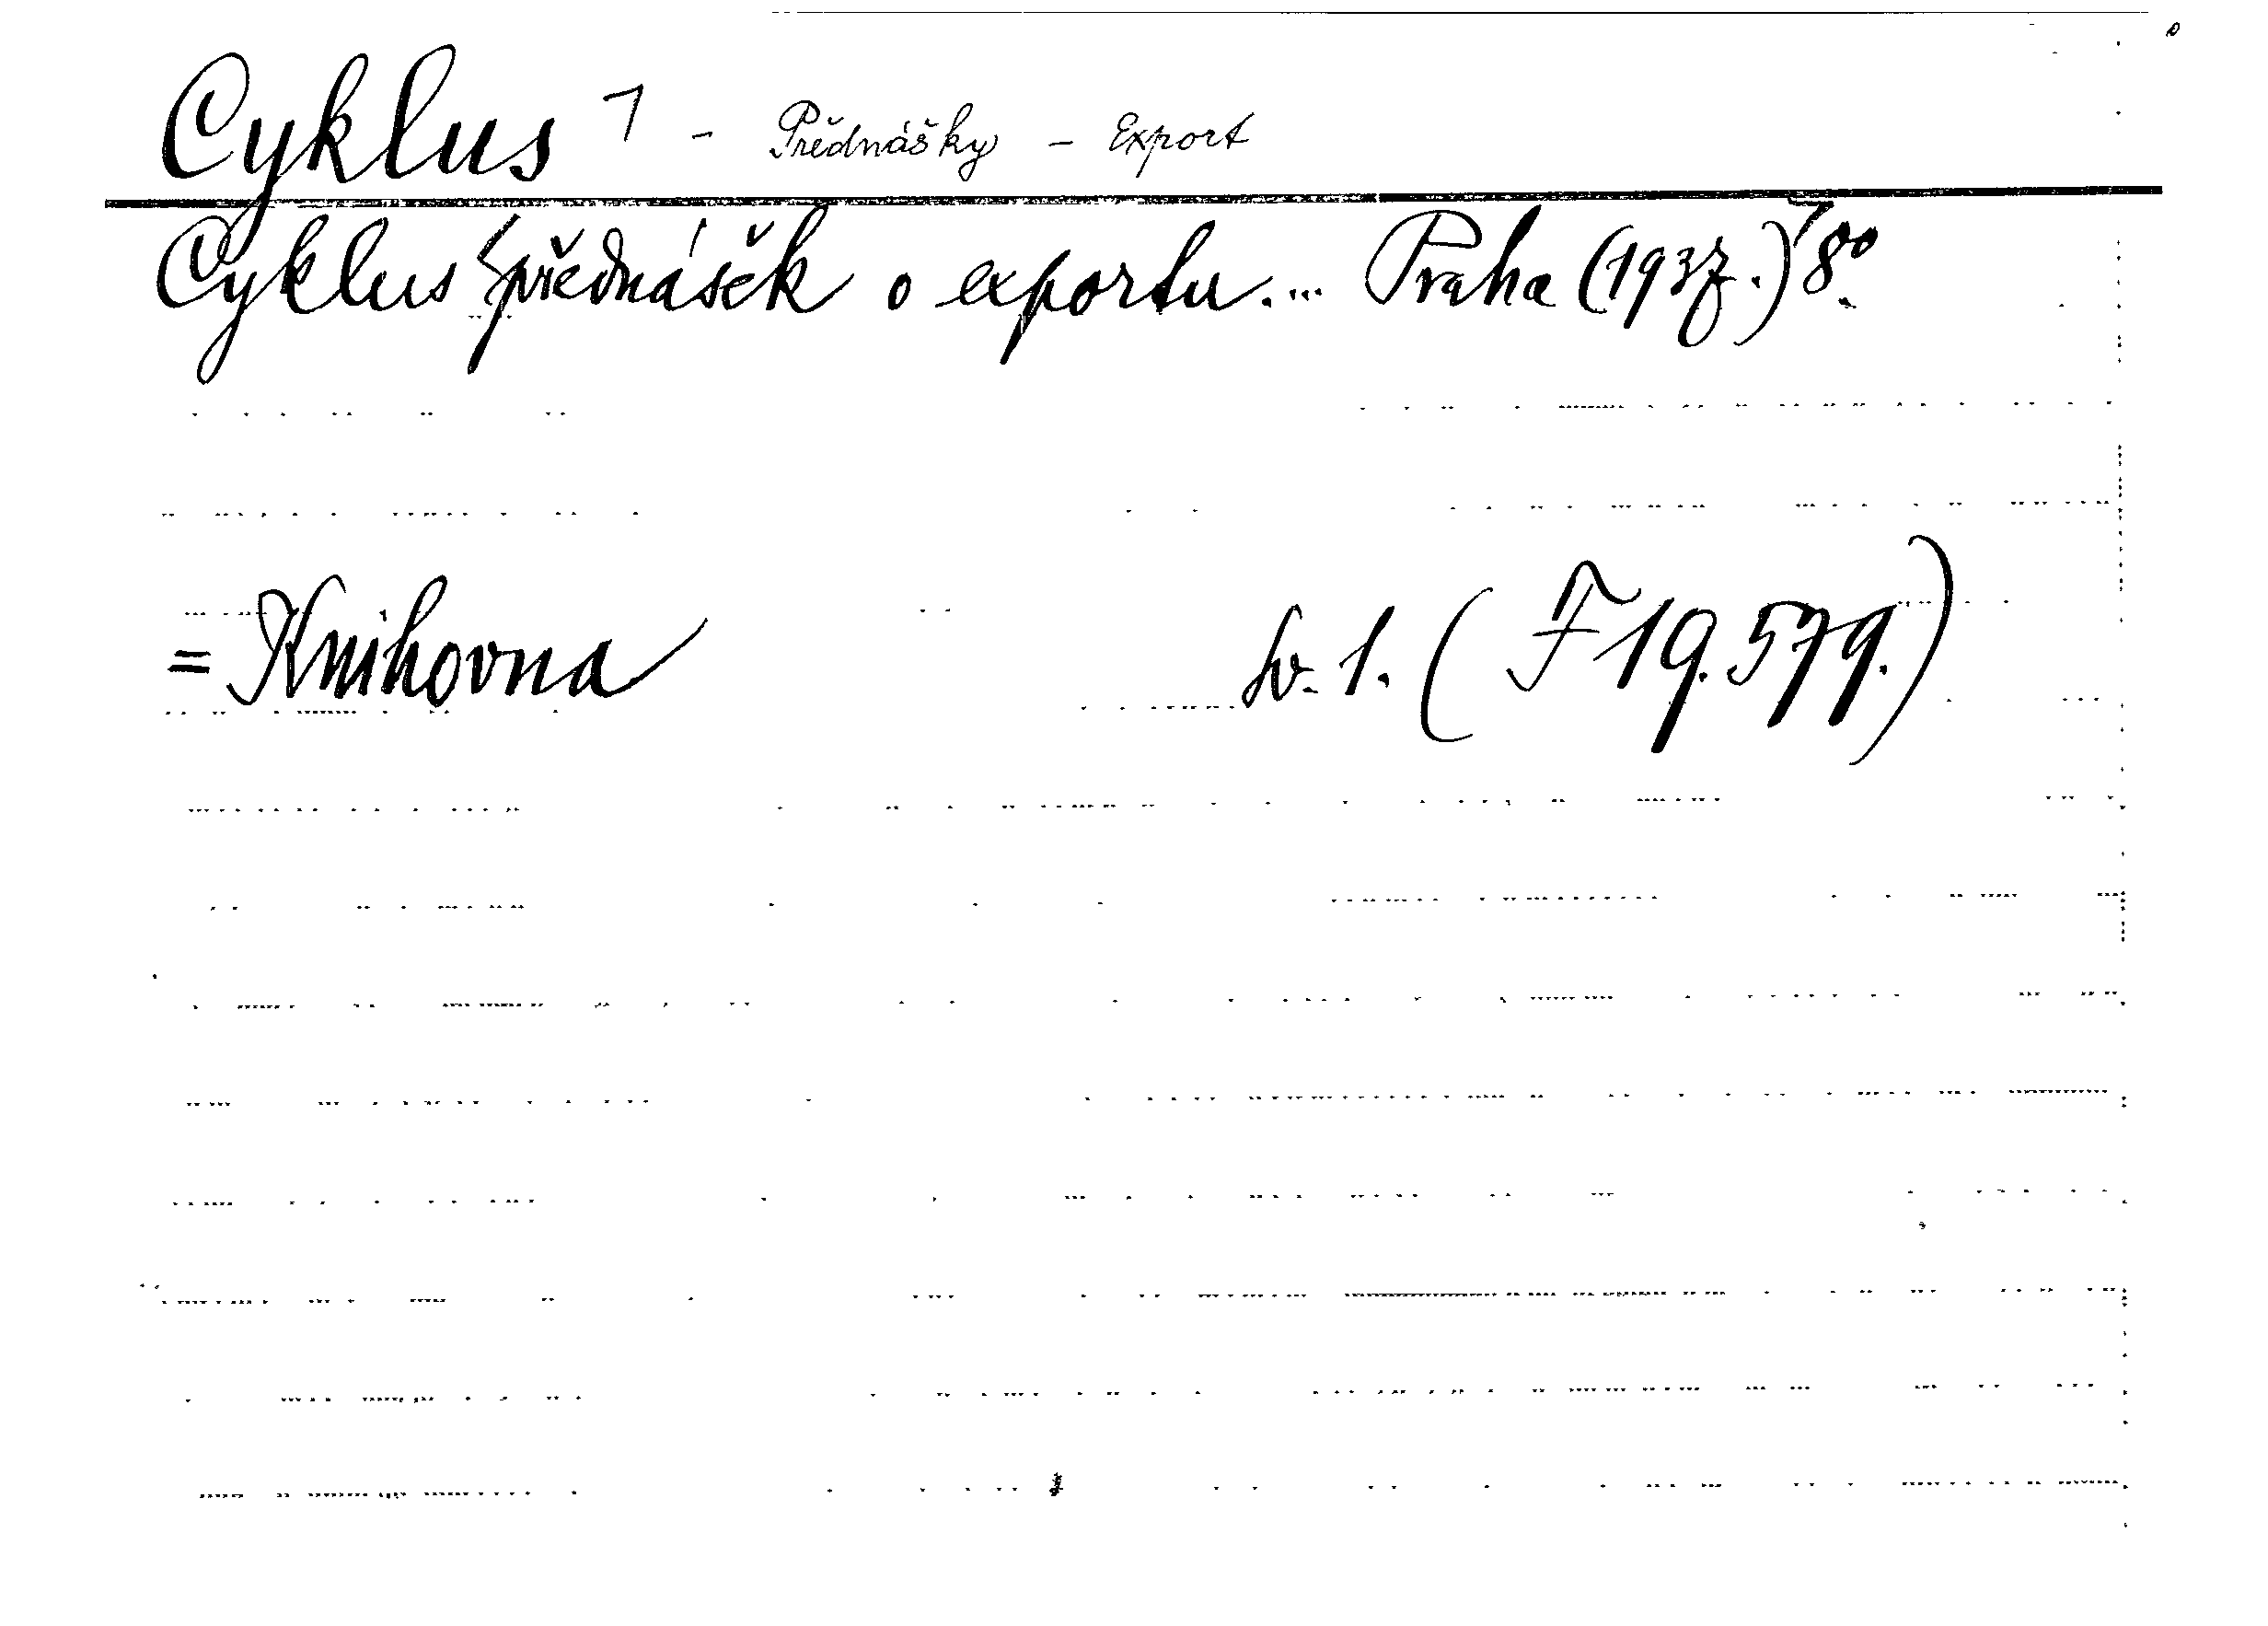 Cyklus ㄱ - Přednášky - Export
Cyklus přednášek o exportu.... Praha (1937.) 8º.
= Knihovna sv. 1. ( F 19.579.)